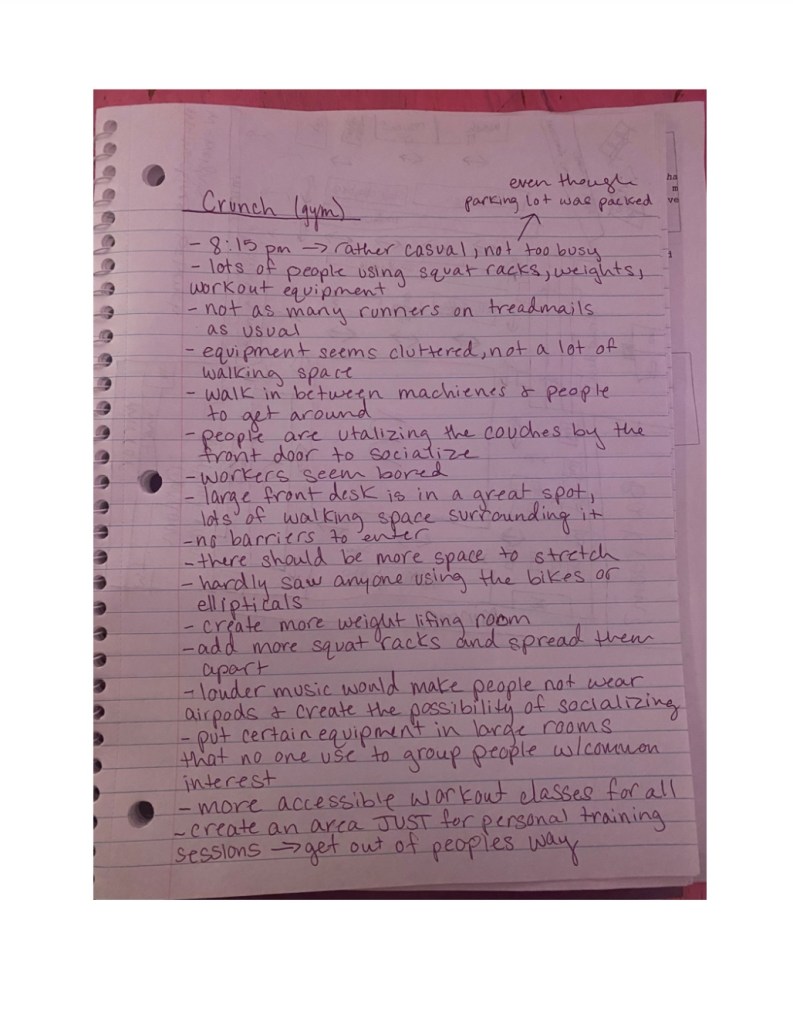 even though
parking lot was packed
Crunch (gym)
- 8:15 pm → rather casual, not too busy
- lots of people using squat racks, weights,
workout equipment
- not as many runners on treadmails
as usual
- equipment seems cluttered, not a lot of
walking space
- walk in between machienes & people
to get around
- people are utalizing the couches by the
front door to socialize
- workers seem bored
- large front desk is in a great spot,
lots of walking space surrounding it
- no barriers to enter
- there should be more space to stretch
- hardly saw anyone using the bikes or
ellipticals
- create more weight lifing room
- add more squat racks and spread them
apart
- louder music would make people not wear
airpods & create the possibility of socializing
- put certain equipment in large rooms
that no one use to group people w/common
interest
- more accessible workout classes for all
- create an area JUST for personal training
sessions → get out of peoples way
ha
m
ve